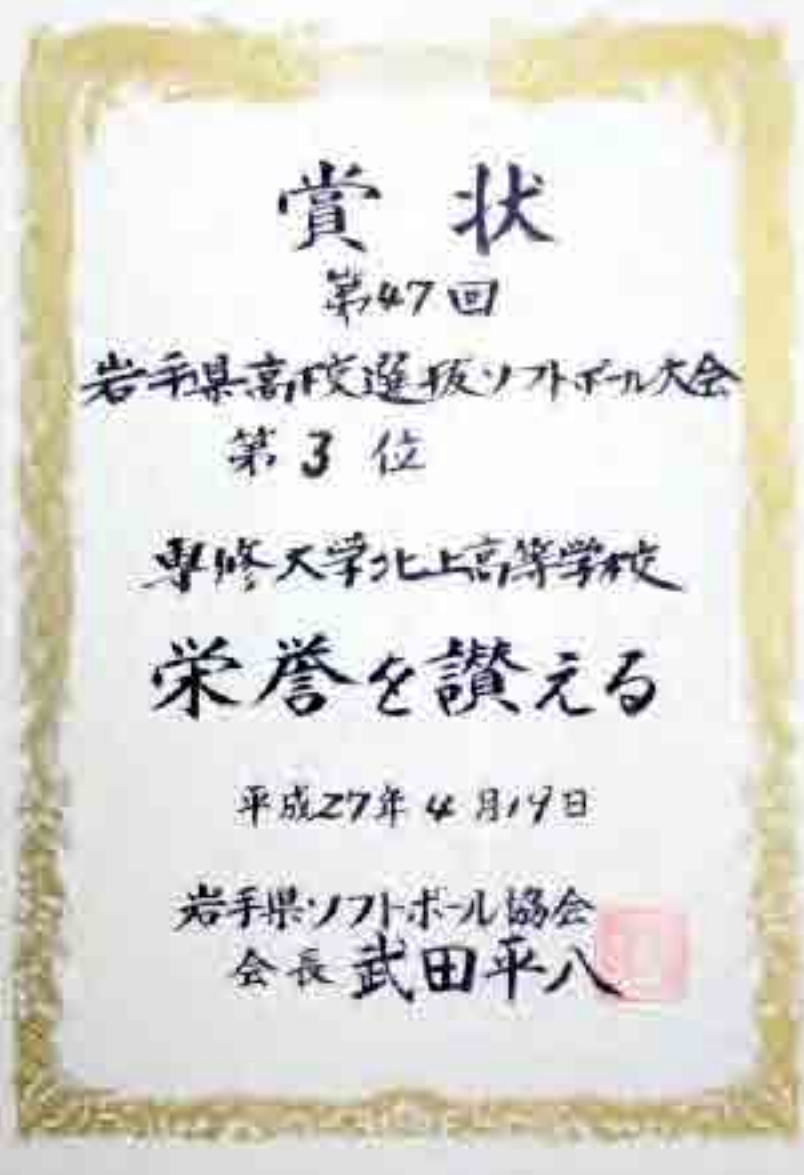 賞状
第47回
岩手県高校選抜ソフトボール大会
第3位
専修大学北上高等学校
栄誉を讃える
平成27年4月19日
岩手県ソフトボール協会
会長 武田平八